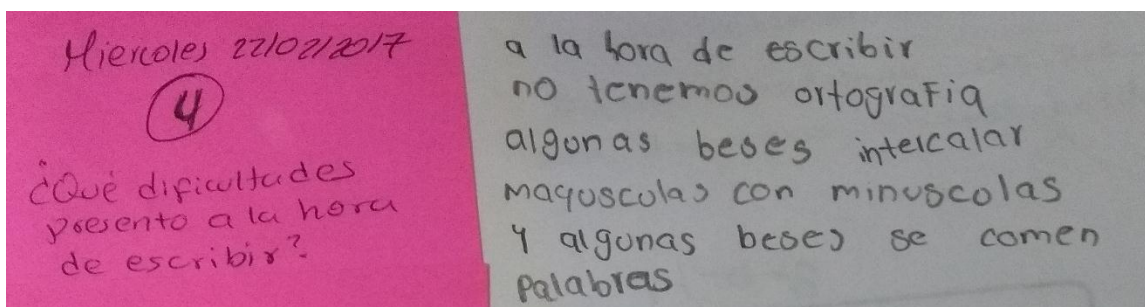 Miercoles 22/02/2017
4
¿Qué dificultades
presento a la hora
de escribir?
a la hora de escribir
no tenemos ortografia
algunas beses intercalar
mayuscolas con minuscolas
y algunas beses se comen
palabras